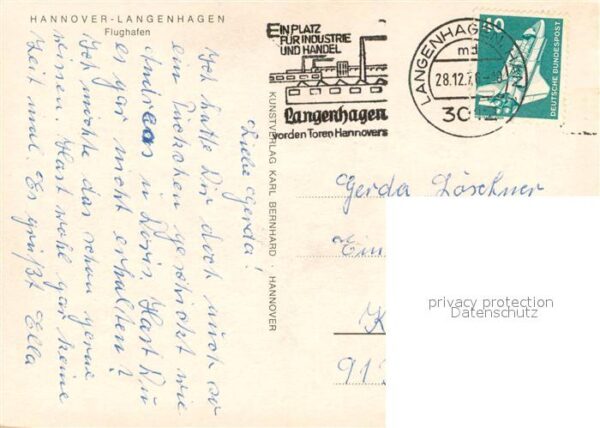 HANNOVER-LANGENHAGEN
Flughafen
EIN PLATZ
FÜR INDUSTRIE
UND HANDEL
Langenhagen
vor den Toren Hannovers
LANGENHAGEN, HAN
md
28.12.76-
3012
40
DEUTSCHE BUNDESPOST
KUNSTVERLAG KARL BERNHARD · HANNOVER
Liebe Gerda!
Ich hatte Dir doch auch so
ein Päckchen geschickt wie
Andreas in Doris. Hast Du
es gar nicht erhalten?
Ich möchte das schon gerne
wissen. Hast wohl gar keine
Zeit mal. Es grüßt Ella
Gerda Löschner
Ein
K
913
privacy protection
Datenschutz